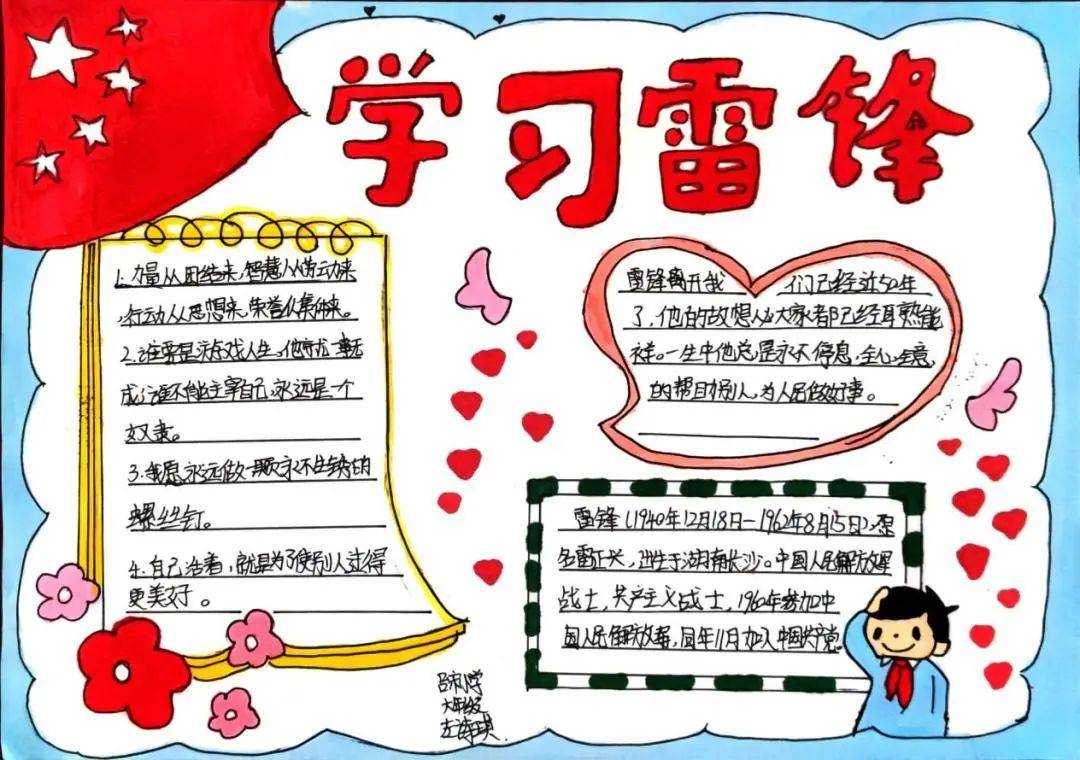 学习雷锋
1.力量从团结来,智慧从劳动来
,行动从思想来,荣誉从集体来。
2.谁要是游戏人生,他就一事无
成;谁不能主宰自己,永远是一个
奴隶。
3.我愿永远做一颗永不生锈的
螺丝钉。
4.自己活着,就是为了使别人过得
更美好。
雷锋离开我们已经近50年
了,他的故想必大家都已经耳熟能
祥。一生中他总是永不停息,全心全意
的帮目别人,为人民做好事。
雷锋(1940年12月18日—1962年8月15日),原
名雷正兴,出生于湖南长沙。中国人民解放军
战士,共产主义战士,1960年参加中
国人民解放军,同年11月加入中国共产党。
小学
六年级